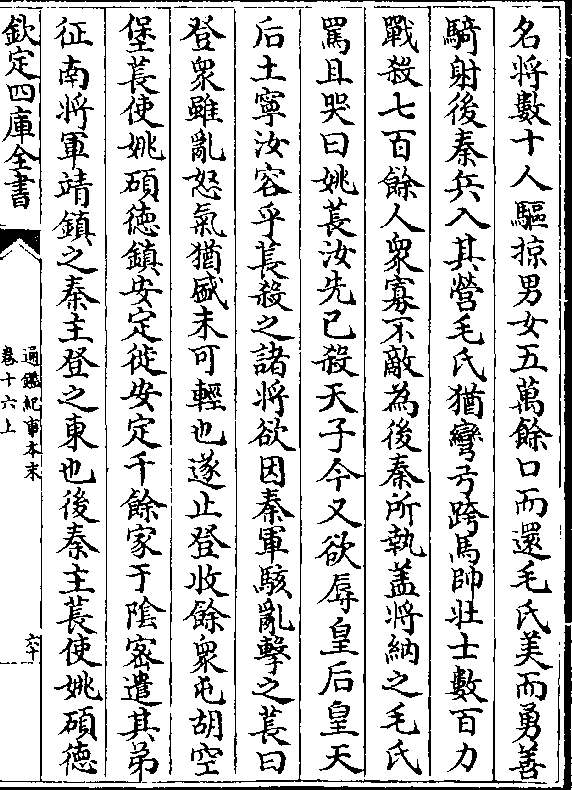 名將數十人驅掠男女五萬餘口而還毛氏美而勇善
騎射後秦兵入其營毛氏猶彎弓跨馬帥壯士數百力
戰殺七百餘人衆寡不敵為後秦所執葢將納之毛氏
罵且哭曰姚萇汝先已殺天子今又欲辱皇后皇天
后土寧汝容乎萇殺之諸將欲因秦軍駭亂擊之萇曰
登衆雖亂怒氣猶盛未可輕也遂止登收餘衆屯胡空
堡萇使姚碩德鎮安定徙安定千餘家于陰密遣其弟
征南將軍靖鎮之秦主登之東也後秦主萇使姚碩德
欽定四庫全書
通鑑紀事本末
卷十六上
六十